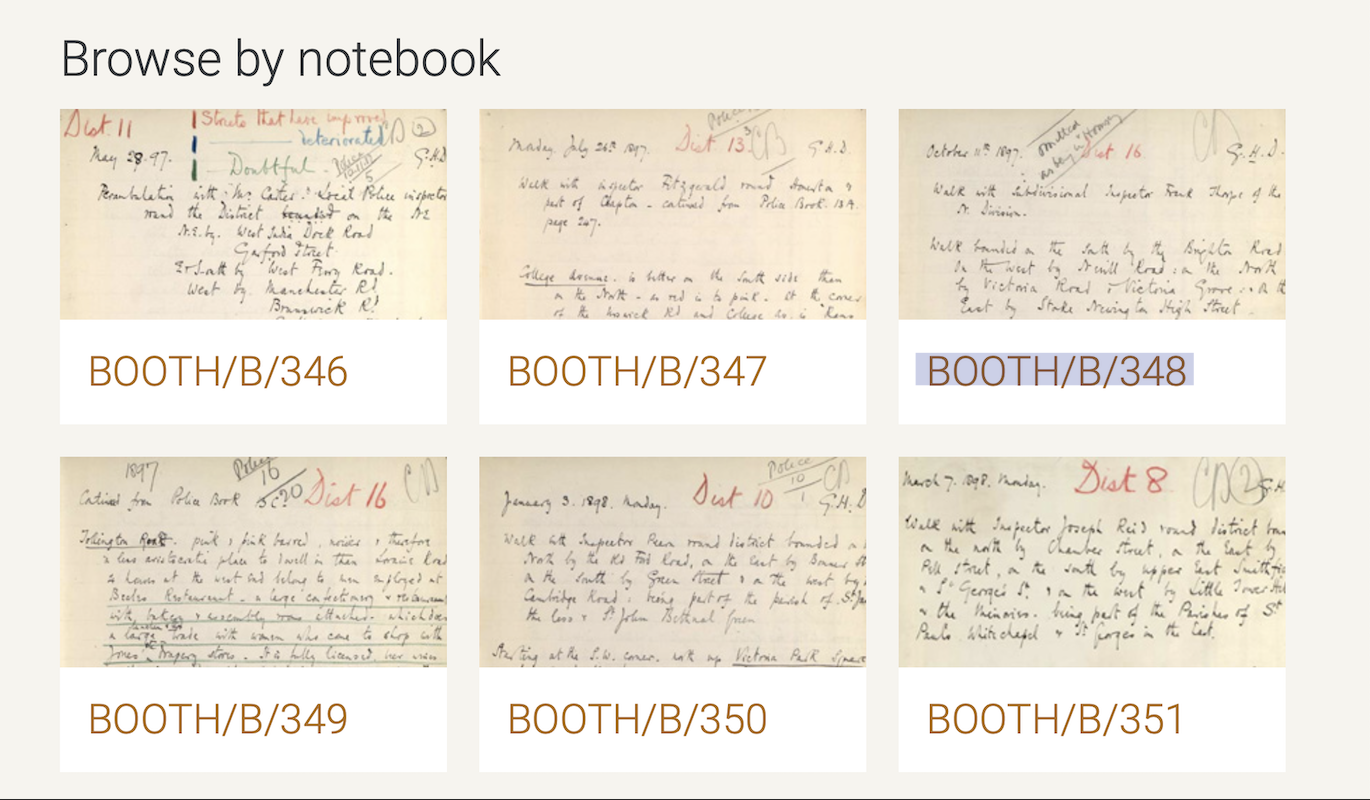 Browse by notebook
Dist. 11
Streets that have improved
deteriorated
Doubtful
Police
5
CD 2
May 28.97.
G.H.D
Perambulation with Mr Carter. Local Police inspector
round the District bounded on the NE
N.E. by. West India Dock Road
Garford Street.
& South by West Ferry Road.
West by. Manchester Rd
Brunswick Rd
BOOTH/B/346
Police
Monday. July 26th 1897. Dist 13 G.H.D.
Walk with inspector Fitzgerald round Homerton &
part of Clapton - continued from Police Book. 13A.
page 247.
College Avenue. is better on the South side than
on the North - as red is to pink. At the corner
of the Homerton Rd and College Av. is
BOOTH/B/347
CD
October 11th 1897. Dist 16. G.H.D.
Walk with Subdivisional Inspector Frank Thorpe of the
N. Division.
Walk bounded on the South by the Brighton Road
on the West by Nevill Road: on the North
by Victoria Road & Victoria Grove: on the
East by Stoke Newington High Street.
BOOTH/B/348
1897
Police
16
20
CD
Continued from Police Book Dist 16
Tollington Road. pink & pink barred, noisier & therefore
a less aristocratic place to dwell in than Road
houses at the west end belong to men employed at
Restaurant - a large confectionery & restaurant
with & assembly rooms attached. which does
a large trade with women who come to shop with
Jones' Drapery stores. It is fully licensed,
BOOTH/B/349
Police
10
1
CD
January 3. 1898. Monday. Dist 10 G.H.D
Walk with Inspector Pearn round district bounded on
North by the Old Ford Road, on the East by Bonner St
on the South by Green Street & on the west by
Cambridge Road: being part of the parish of St Ja
the less & St John Bethnal Green
Starting at the S.W. corner. north up Victoria Park Square
BOOTH/B/350
CD 2
March 7. 1898. Monday. Dist 8 G.H.
Walk with Inspector Joseph Reid round district boun
on the north by Chamber Street, on the East by
Street, on the South by upper East Smithfie
& St George's St. & on the west by Little Tower Hill
& the Minories. being part of the Parishes of St
Pauls Whitechapel & St Georges in the East.
BOOTH/B/351